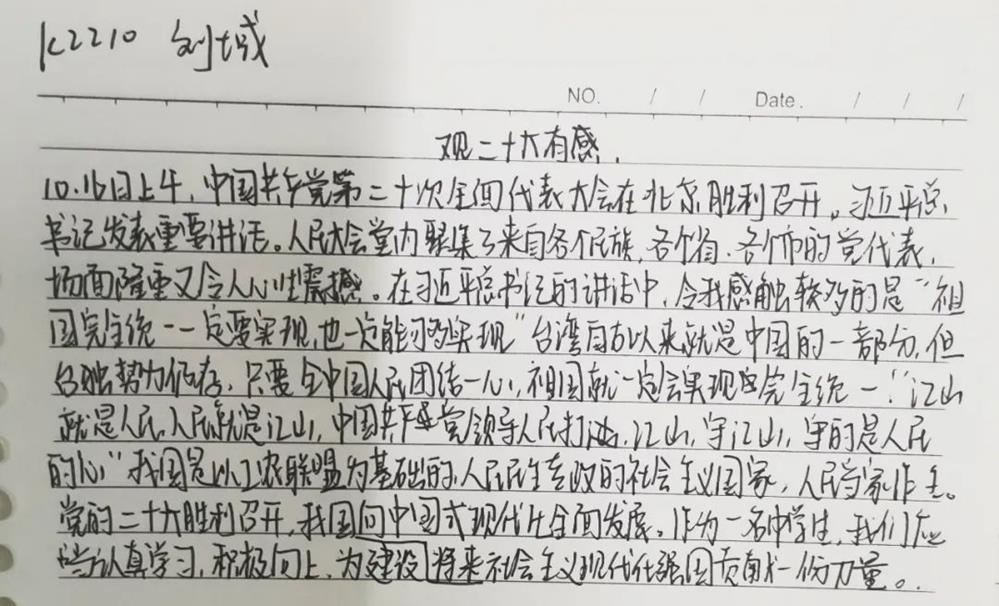 K2210 刘域
NO. / / Date. / / /
观二十大有感.
10.16日上午,中国共产党第二十次全面代表大会在北京胜利召开。习近平总
书记发表重要讲话。人民大会堂内聚集了来自各个民族,各个省、各个市的党代表,
场面隆重又令人心生震撼。在习近平总书记的讲话中,令我感触较多的是“祖
国完全统一一定要实现,也一定能够实现”台湾自古以来就是中国的一部分,但
台独势力仍存,只要全中国人民团结一心,祖国就一定会实现完全统一.“江山
就是人民,人民就是江山,中国共产党领导人民打江山,守江山,守的是人民
的心”我国是以工农联盟为基础的,人民民主专政的社会主义国家,人民当家作主。
党的二十大胜利召开,我国向中国式现代化全面发展。作为一名中学生,我们应
当认真学习,积极向上,为建设将来社会主义现代化强国贡献一份力量。